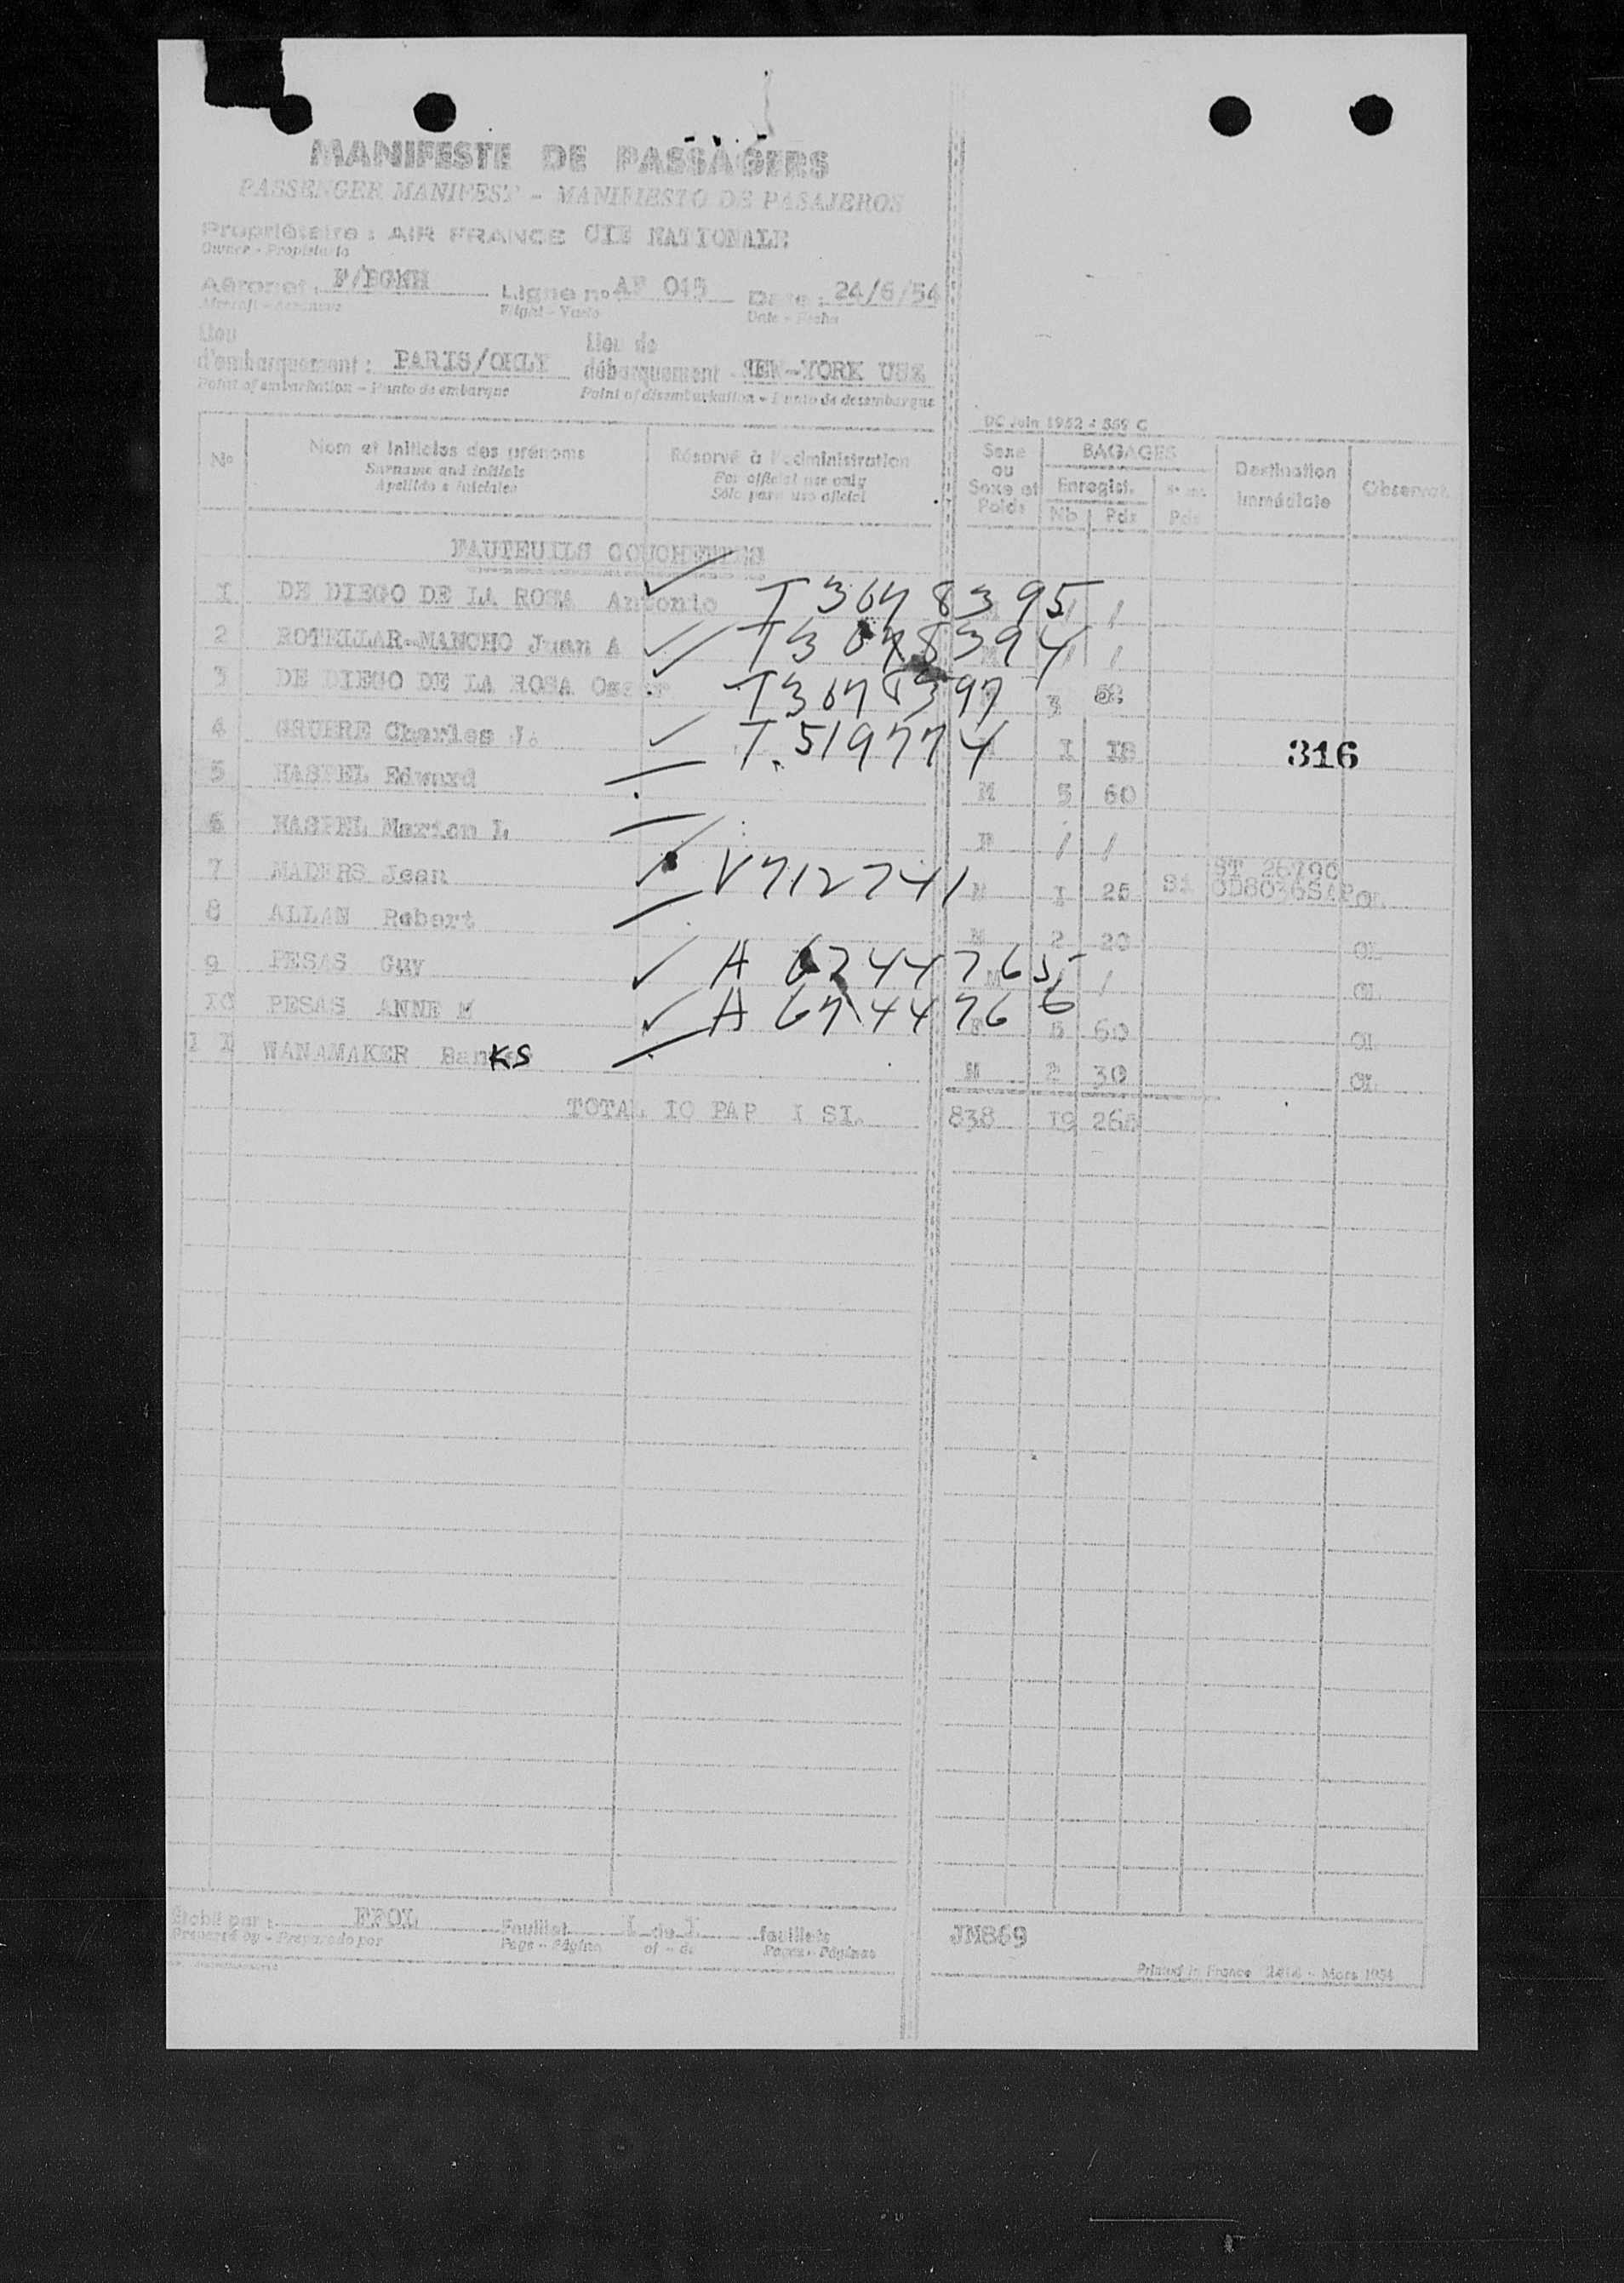 MANIFESTE DE PASSAGERS
PASSENGER MANIFEST - MANIFIESTO DE PASAJEROS
Propriétaire : AIR FRANCE CIE NATIONALE
Owner - Propietario
Aéronef : F/BGNH Ligne n° AF 045 Date : 24/6/54
Aircraft - Aeronave Flight - Vuelo Date - Fecha
Lieu d'embarquement : PARIS/ORLY Lieu de débarquement NEW-YORK USA
Point of embarkation - Punto de embarque Point of disembarkation - Punto de desembarque
DC Juin 1952 - 559 C
N° Nom et initiales des prénoms Réservé à l'administration Sexe ou Sexe et Poids BAGAGES Destination immédiate Observat.
Surname and initials For official use only Enregist.
Apellido e iniciales Sólo para uso oficial Nb Pds Pds
FAUTEUILS COUCHETTES
1 DE DIEGO DE LA ROSA Antonio T3678395 M / /
2 ROTELLAR-MANCHO Juan A T3678394 M / /
3 DE DIEGO DE LA ROSA Oscar T3678397 3 52
4 GRUERE Charles J. T.519774 M I 18
316
5 HASPEL Edward M 5 60
6 HASPEL Marion L F / /
7 MADERS Jean V712741 M I 25 OL
8 ALLAN Robert M 2 20 OL
9 PESAS Guy A 6744765 M / / OL
10 PESAS ANNE M A 6744766 F 5 60 OL
1 1 WANAMAKER Banks M 2 30 OL
TOTAL 10 PAP I SI. 838 19 265
Établi par : EFOL Feuillet I de I feuillets JM869
Prepared by - Preparado por Page - Página of - de Pages - Páginas
Printed in France - Mars 1954